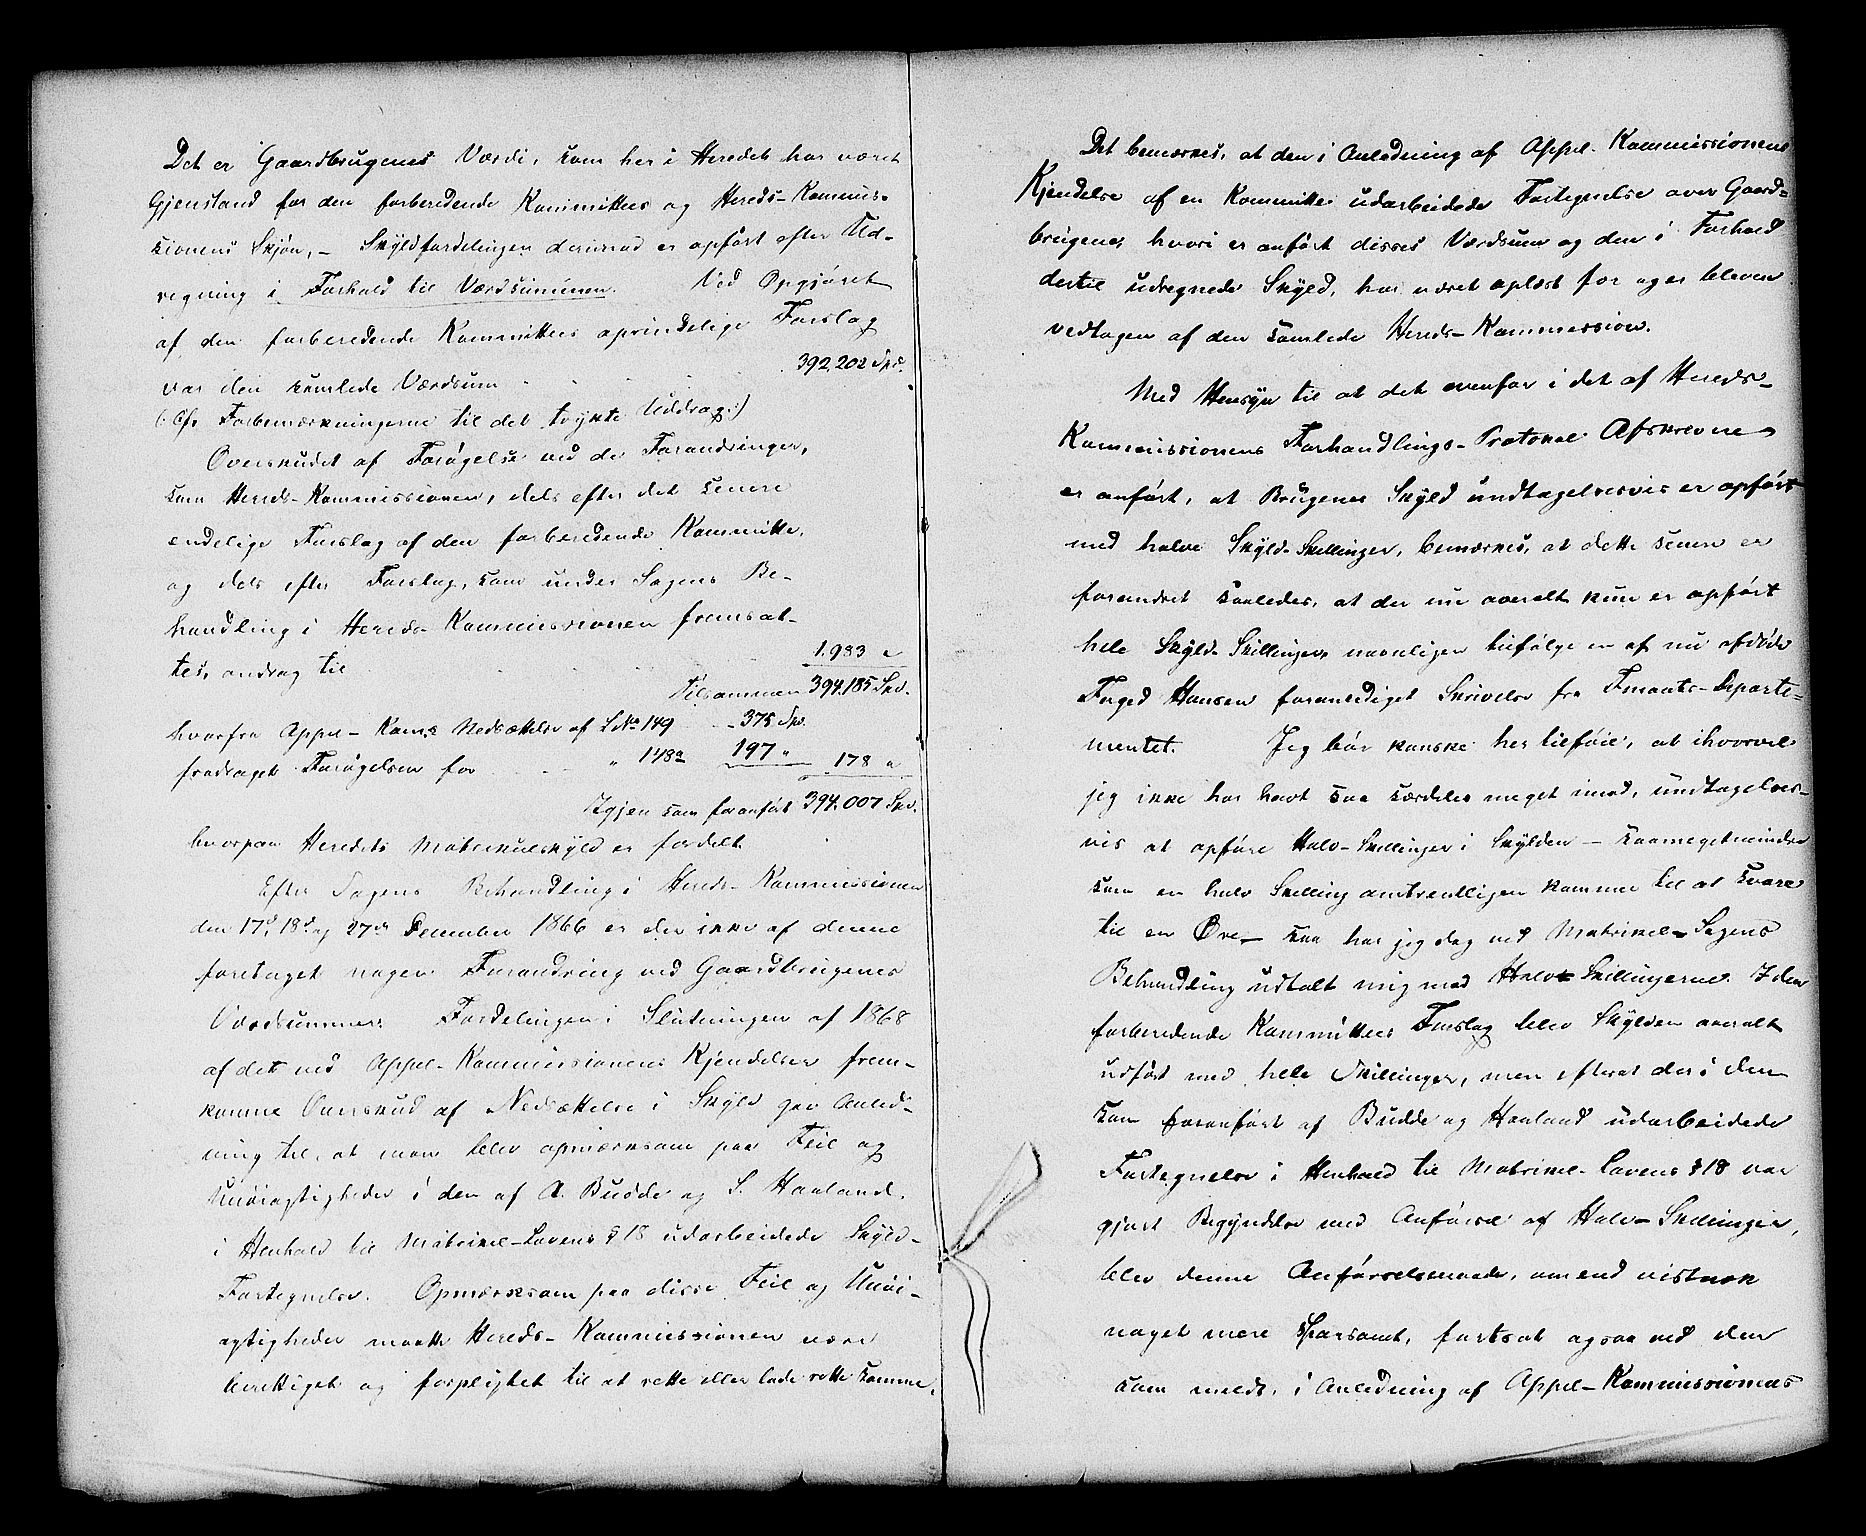 Det er Gaardbrugenes Værdi, som her i Heredet har været
Gjenstand for den forberedende Kommittees og Hereds-Kommis-
sionens Skjøn, - Skyldfordelingen derimod er opført efter Ud-
regning i Forhold til Værdsummen. Ved Opgjøret
af den forberedende Kommittees oprindelige Forslag
var den samlede Værdsum . . . . 392,202 Spd.
(: Cfr Forbemærkningerne til det trykte Uddrag :)
Overskudet af Forøgelse ved de Forandringer,
som Hereds-Kommissionen, dels efter det senere
endelige Forslag af den forberedende Kommitte,
og dels efter Forslag, som under Sagens Be-
handling i Hereds-Kommissionen fremsat-
tes, androg til . . . 1,983 "
Tilsammen 394,185 Spd.
hvorfra Appel-Koms Nedsættelse af LNo 149 . . 375 Spd.
fradraget Forøgelsen for . . . " 148a 197 " 178 "
Igjen som foranført 394,007 Spd.
hvorpaa Heredets Matrikulskyld er fordelt.
Efter Sagens Behandling i Hereds-Kommissionen
den 17de, 18de og 27de December 1866 er der ikke af denne
foretaget nogen Forandring ved Gaardbrugenes
Værdsummer. Fordelingen i Slutningen af 1868
af det ved Appel-Kommissionens Kjendelser frem-
komne Overskud af Nedsættelse i Skyld gav Anled-
ning til, at man blev opmærksom paa Feil og
Unøiagtigheder i den af A. Budde og S. Haaland,
i Henhold til Matrikul-Lovens § 18 udarbeidede Skyld-
Fortegnelse. Opmærksom paa disse Feil og Unøi-
agtigheder maatte Hereds-Kommissionen være
berettiget og forpligtet til at rette eller lade rette samme.
Det bemærkes, at den i Anledning af Appel-Kommissionens
Kjendelse af en Kommitte udarbeidede Fortegnelse over Gaard-
brugene, hvori er anført disses Værdsum og den i Forhold
dertil udregnede Skyld, har været oplæst for og er bleven
vedtagen af den samlede Hereds-Kommission.
Med Hensyn til at det ovenfor i det af Hereds-
Kommissionens Forhandlings-Protokol Afskrevne
er anført, at Brugenes Skyld undtagelsesvis er opført
med halve Skyld-Skillinger, bemærkes, at dette senere er
forandret saaledes, at der nu overalt kun er opført
hele Skyld-Skillinger, navnligen tilfølge en af nu afdøde
Foged Hansen foranlediget Skrivelse fra Finants-Departe-
mentet. Jeg bør kanske her tilføie, at ihvorvel
jeg ikke har havt saa særdeles meget imod, undtagelses-
vis at opføre Halv-Skillinger i Skylden - saameget mindre
som en halv Skilling omtrentligen kommer til at svare
til en Øre - saa har jeg dog ved Matrikul-Sagens
Behandling udtalt mig mod Halv-Skillingerne. I den
forberedende Kommittees Forslag blev Skylden overalt
udført med hele Skillinger, men efterat der i den
som foranført af Budde og Haaland udarbeidede
Fortegnelse i Henhold til Matrikul-Lovens § 18 var
gjort Begyndelse med Anførsel af Halv-Skillinger,
blev denne Anførselsmaade, omend vistnok
noget mere sparsomt, fortsat ogsaa ved den
som meldt, i Anledning af Appel-Kommissionens